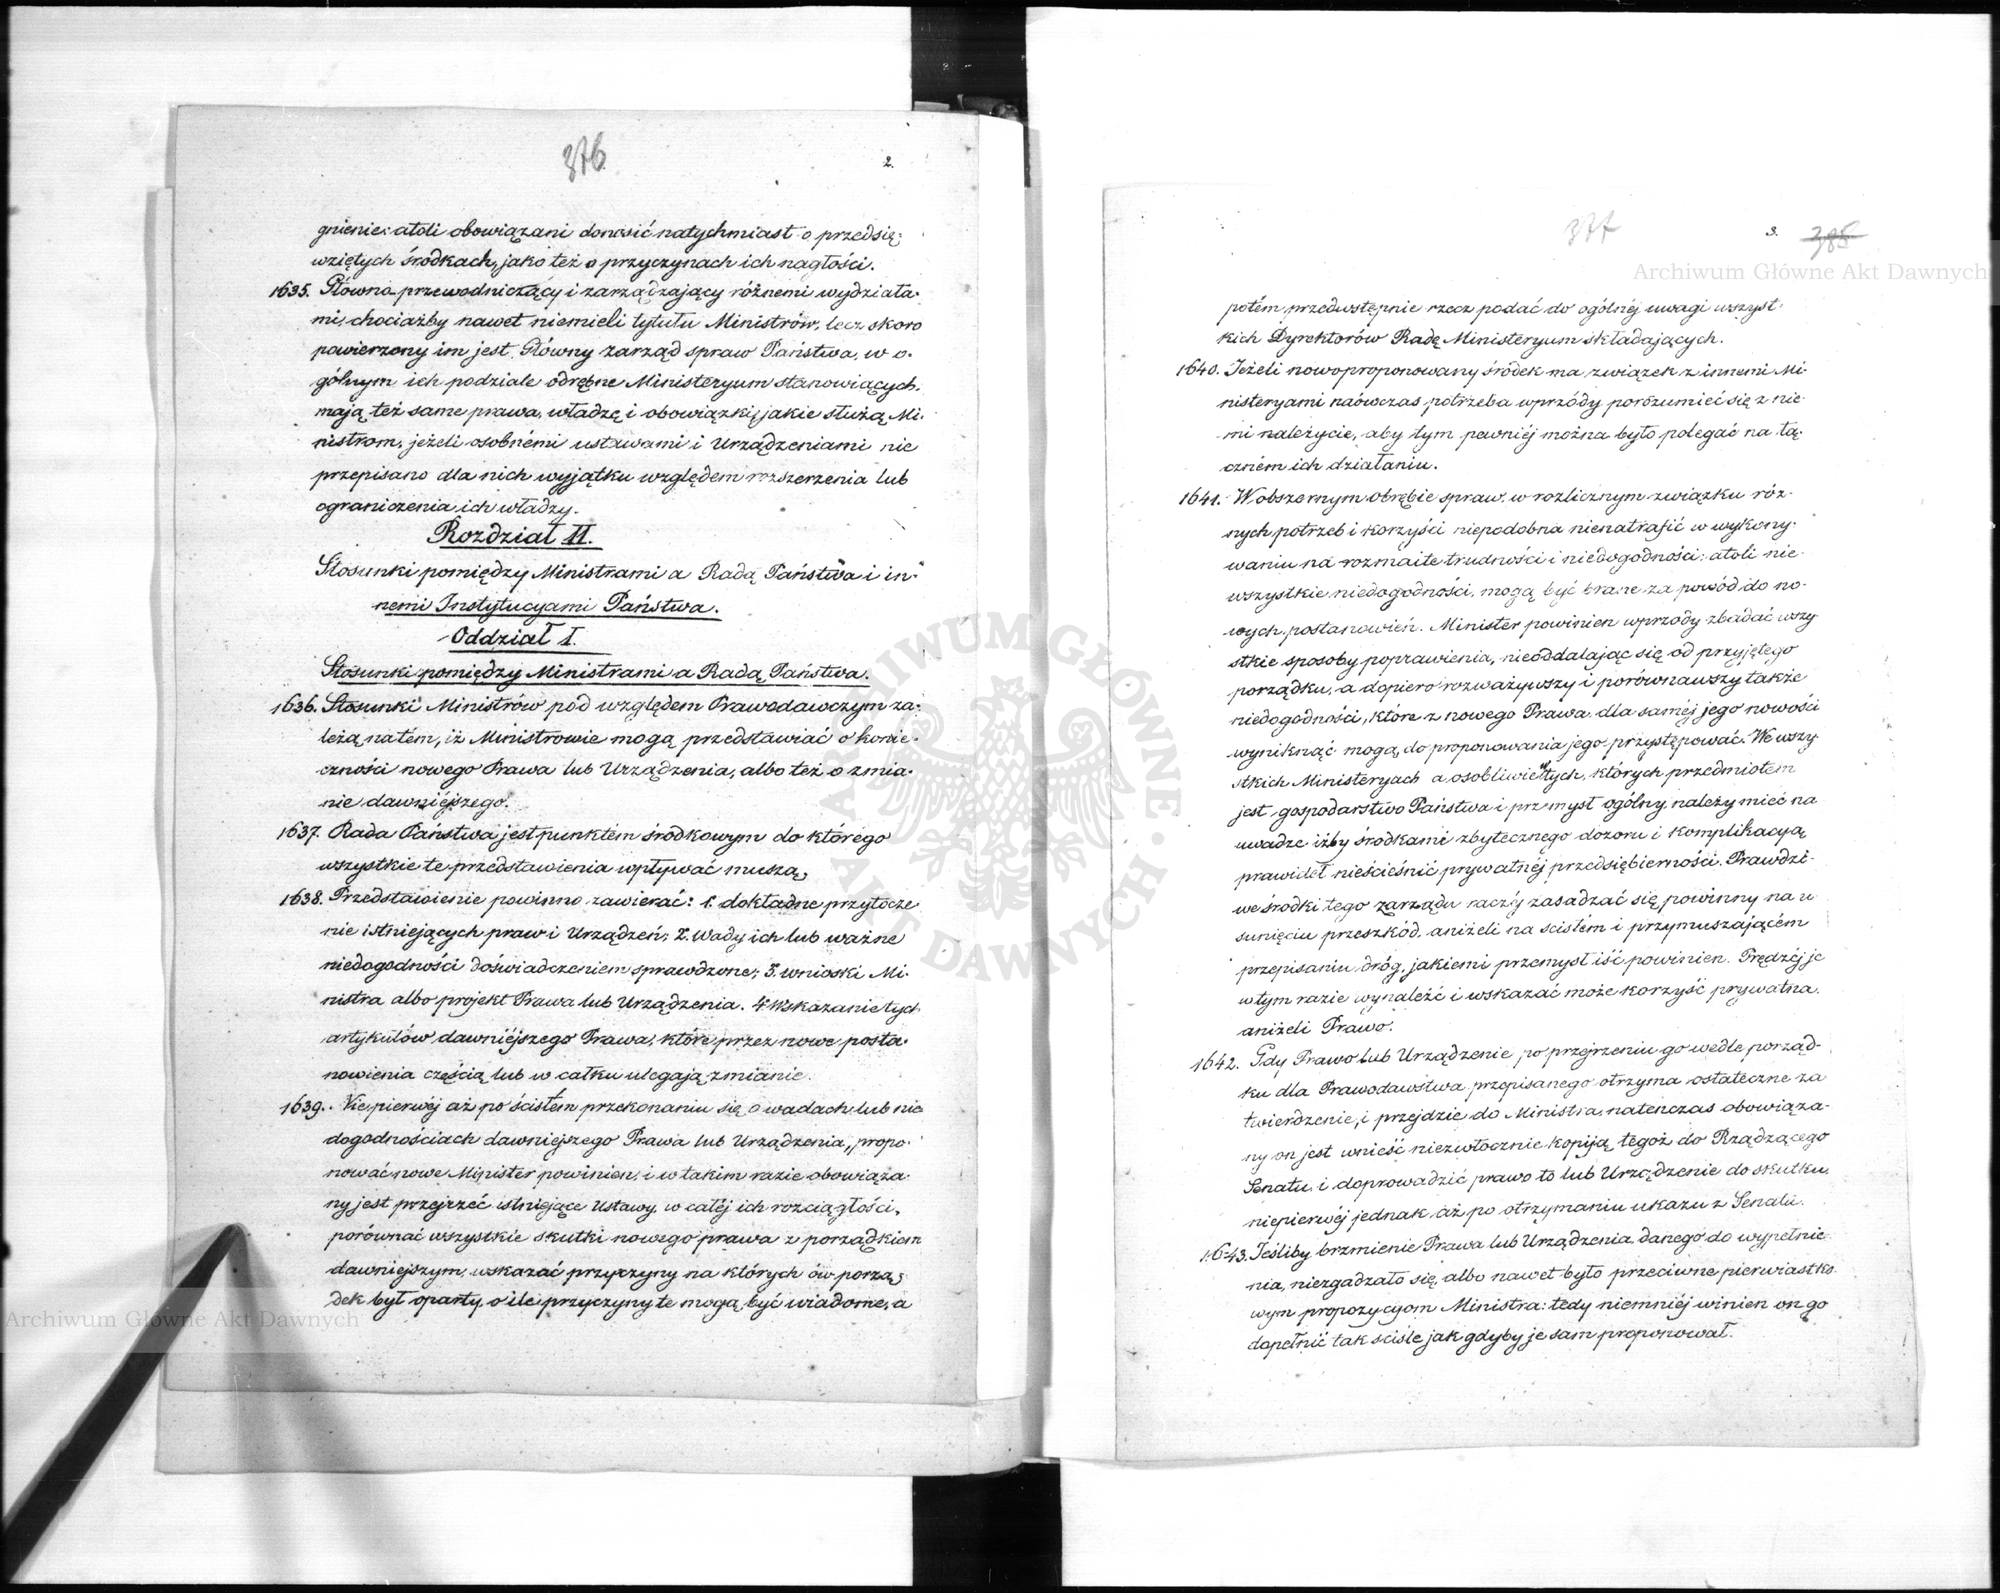 376
2.
gnienie: atoli obowiązani donosić natychmiast o przedsię-
wziętych środkach, jako też o przyczynach ich nagłości.
1635. Główno przewodniczący i zarządzający różnemi wydziała-
mi, chociażby nawet niemieli tytułu Ministrów, lecz skoro
powierzony im jest Główny zarząd spraw Państwa, w o-
gólnym ich podziale odrębne Ministeryum stanowiących,
mają też same prawa, władzę i obowiązki, jakie służą Mi-
nistrom, jeżeli osobnémi ustawami i Urządzeniami nie
przepisano dla nich wyjątku względem rozszerzenia lub
ograniczenia ich władzy.
Rozdział II.
Stosunki pomiędzy Ministrami a Radą Państwa i in-
nemi Instytucyami Państwa.
Oddział I.
Stosunki pomiędzy Ministrami a Radą Państwa.
1636. Stosunki Ministrów pod względem Prawodawczym za-
leżą na tém, iż Ministrowie mogą przedstawiać o konie-
czności nowego Prawa lub Urządzenia, albo też o zmia-
nie dawniejszego.
1637. Rada Państwa jest punktem środkowym do którego
wszystkie te przedstawienia wpływać muszą,
1638. Przedstawienie powinno zawierać: 1. dokładne przytocze
nie istniejących praw i Urządzeń; 2. Wady ich lub ważne
niedogodności doświadczeniem sprawdzone; 3. wnioski Mi-
nistra albo projekt Prawa lub Urządzenia. 4. Wskazanie tych
artykułów dawniéjszego Prawa, które przez nowe posta-
nowienia częścią lub w całku ulegają zmianie.
1639. Niepierwéj aż po ścisłém przekonaniu się o wadach lub nie
dogodnościach dawniejszego Prawa lub Urządzenia, propo-
nować nowe Minister powinien, i w takim razie obowiąza-
ny jest przejrzeć istniejące Ustawy w całéj ich rozciągłości,
porównać wszystkie skutki nowego prawa z porządkiem
dawniejszym, wskazać przyczyny na których ów porzą-
dek był oparty, o ile przyczyny te mogą być wiadome, a
377
3.
385
potém przedwstępnie rzecz podać do ogólnéj uwagi wszyst-
kich Dyrektorów Radę Ministeryum składających.
1640. Jeżeli nowoproponowany środek ma związek z innemi Mi-
nisteryami naówczas potrzeba wprzódy porozumieć się z nie-
mi należycie, aby tym pewniéj można było polegać na łą-
czném ich działaniu.
1641. W obszernym obrębie spraw, w rozlicznym związku róż-
nych potrzeb i korzyści niepodobna nienatrafić w wykony-
waniu na rozmaite trudności i niedogodności: atoli nie
wszystkie niedogodności, mogą być brane za powód do no-
wych postanowień. Minister powinien wprzody zbadać wszy
stkie sposoby poprawienia, nieoddalając się od przyjętego
porządku, a dopiero rozważywszy i porównawszy także
niedogodności, które z nowego Prawa dla saméj jego nowości
wyniknąć mogą, do proponowania jego przystępować. We wszy
stkich Ministeryach a osobliwie w tych, których przedmiotem
jest gospodarstwo Państwa i przemysł ogólny, należy mieć na
uwadze iżby środkami zbytecznego dozoru i komplikacyą
prawideł nieścieśnić prywatnéj przedsiębierności. Prawdzi-
we środki tego zarządu raczéj zasadzać się powinny na u
sunięciu przeszkód, aniżeli na scisłém i przymuszającém
przepisaniu dróg, jakiemi przemysł iść powinien. Prędzéj je
w tym razie wynaleźć i wskazać może korzyść prywatna,
aniżeli Prawo.
1642. Gdy Prawo lub Urządzenie, po przejrzeniu go wedle porząd-
ku dla Prawodawstwa przepisanego otrzyma ostateczne za
twierdzenie, i przejdzie do Ministra, natenczas obowiąza-
ny on jest wnieść niezwłocznie kopiją tegoż do Rządzącego
Senatu, i doprowadzić prawo to lub Urządzenie do skutku,
niepierwéj jednak, aż po otrzymaniu ukazu z Senatu.
1643. Jeśliby brzmienie Prawa lub Urządzenia danego do wypełnie-
nia, niezgadzało się, albo nawet było przeciwne pierwiastko
wym propozycyom Ministra: tedy niemniéj winien on go
dopełnić tak ściśle jak gdyby je sam proponował.
Archiwum Główne Akt Dawnych
Archiwum Główne Akt Dawnych
ARCHIWUM GŁÓWNE AKT DAWNYCH